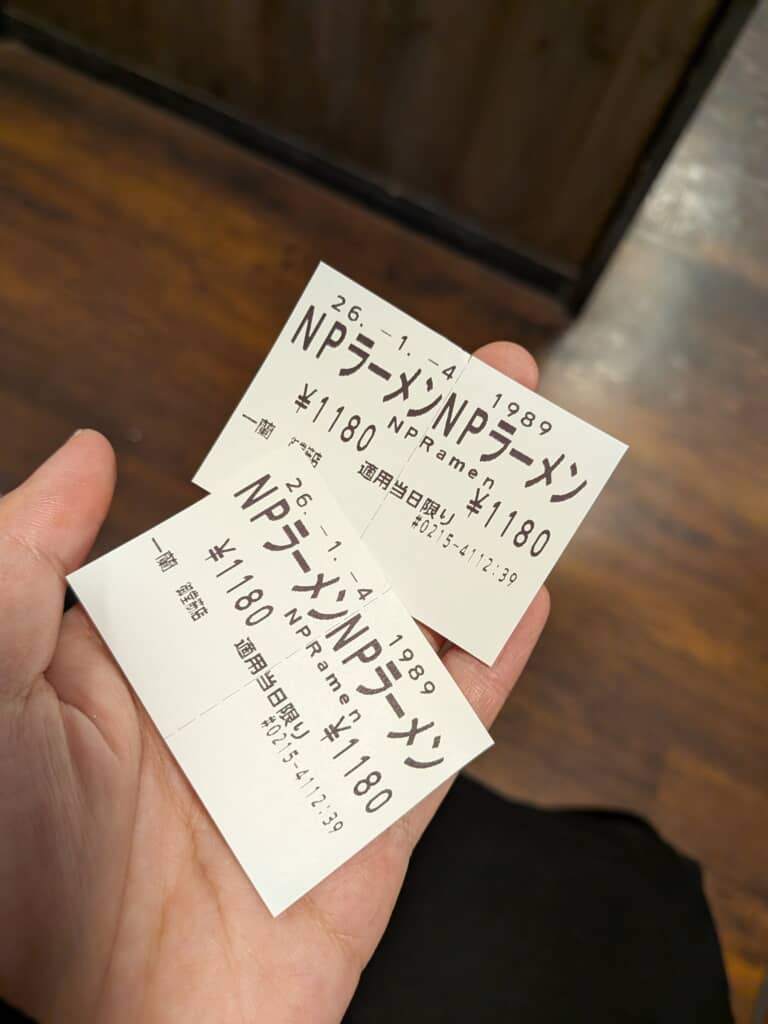 26.-1.-4
NPラーメン
NPRamen
¥1180
一蘭
1989
NPラーメン
¥1180
適用当日限り
#0215-4112:39
26.-1.-4
NPラーメン
NPRamen
¥1180
一蘭
1989
NPラーメン
¥1180
適用当日限り
#0215-4112:39